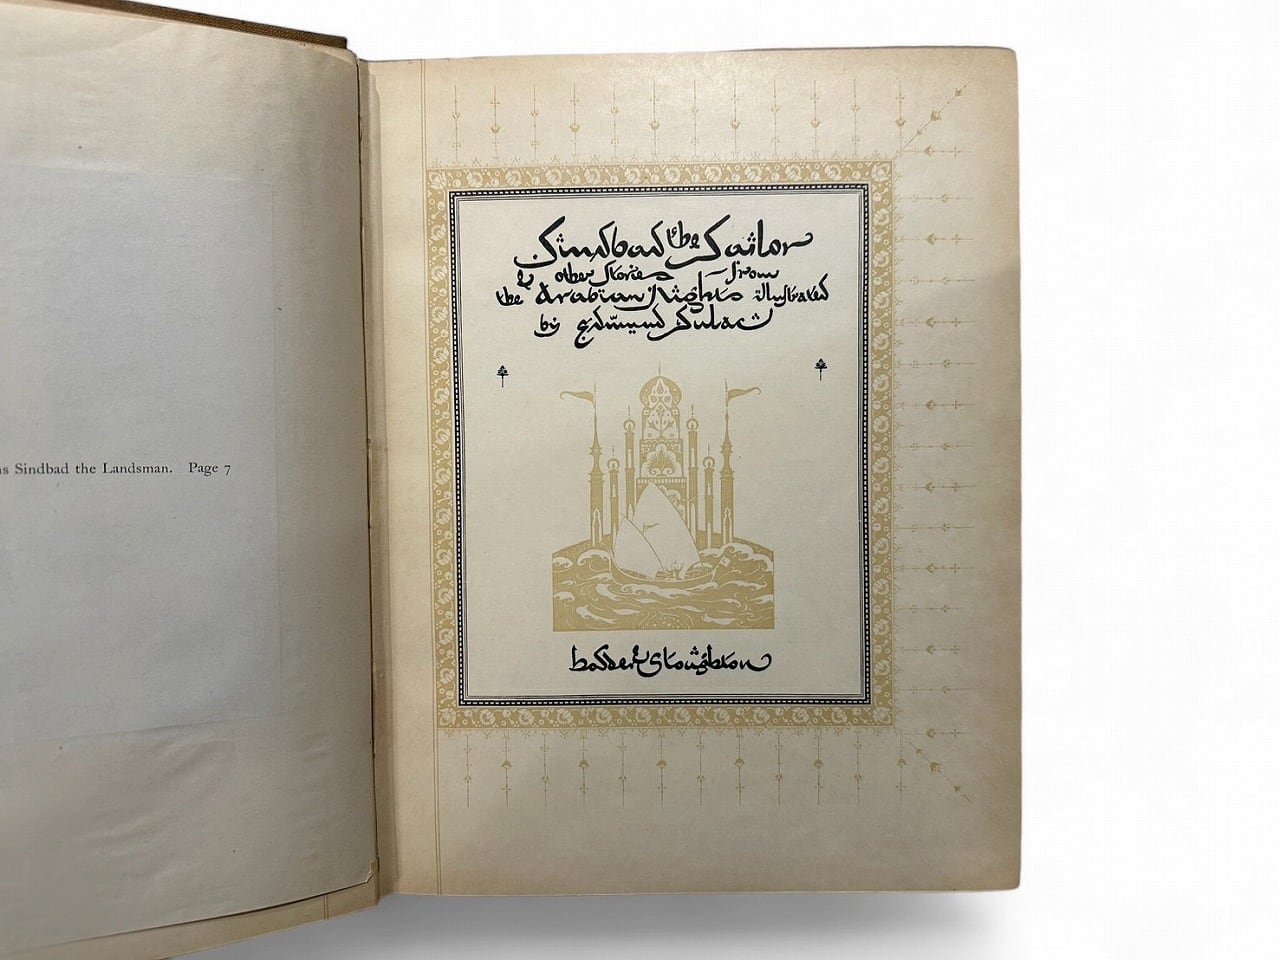 as Sindbad the Landsman. Page 7
Sindbad the Sailor
& other Stories from
the Arabian Nights illustrated
by Edmund Dulac
hodder & Stoughton